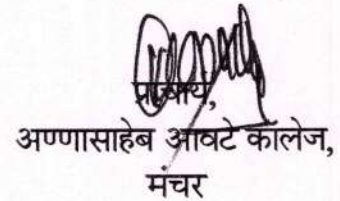 प्राचार्य,
अण्णासाहेब आवटे कॉलेज,
मंचर